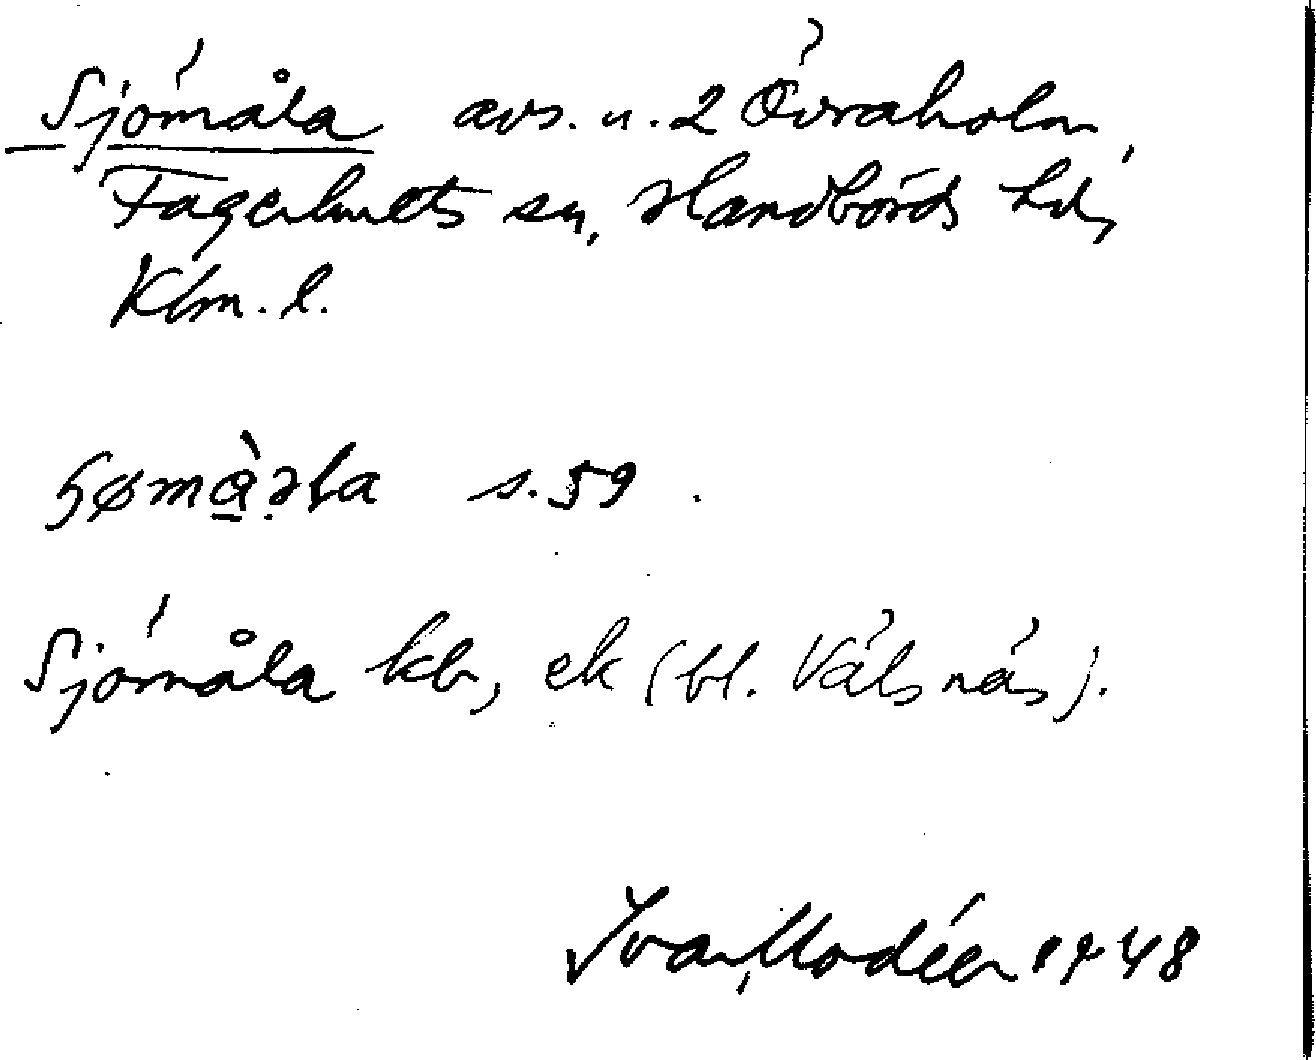 Sjömåla avs. u. 2 Övraholm,
Fagerhults sn, Handbörds hd,
Klm. l.
s. 59
Sjömåla kb, ek (bl. Välsnäs).
Ivar Modéer 1948